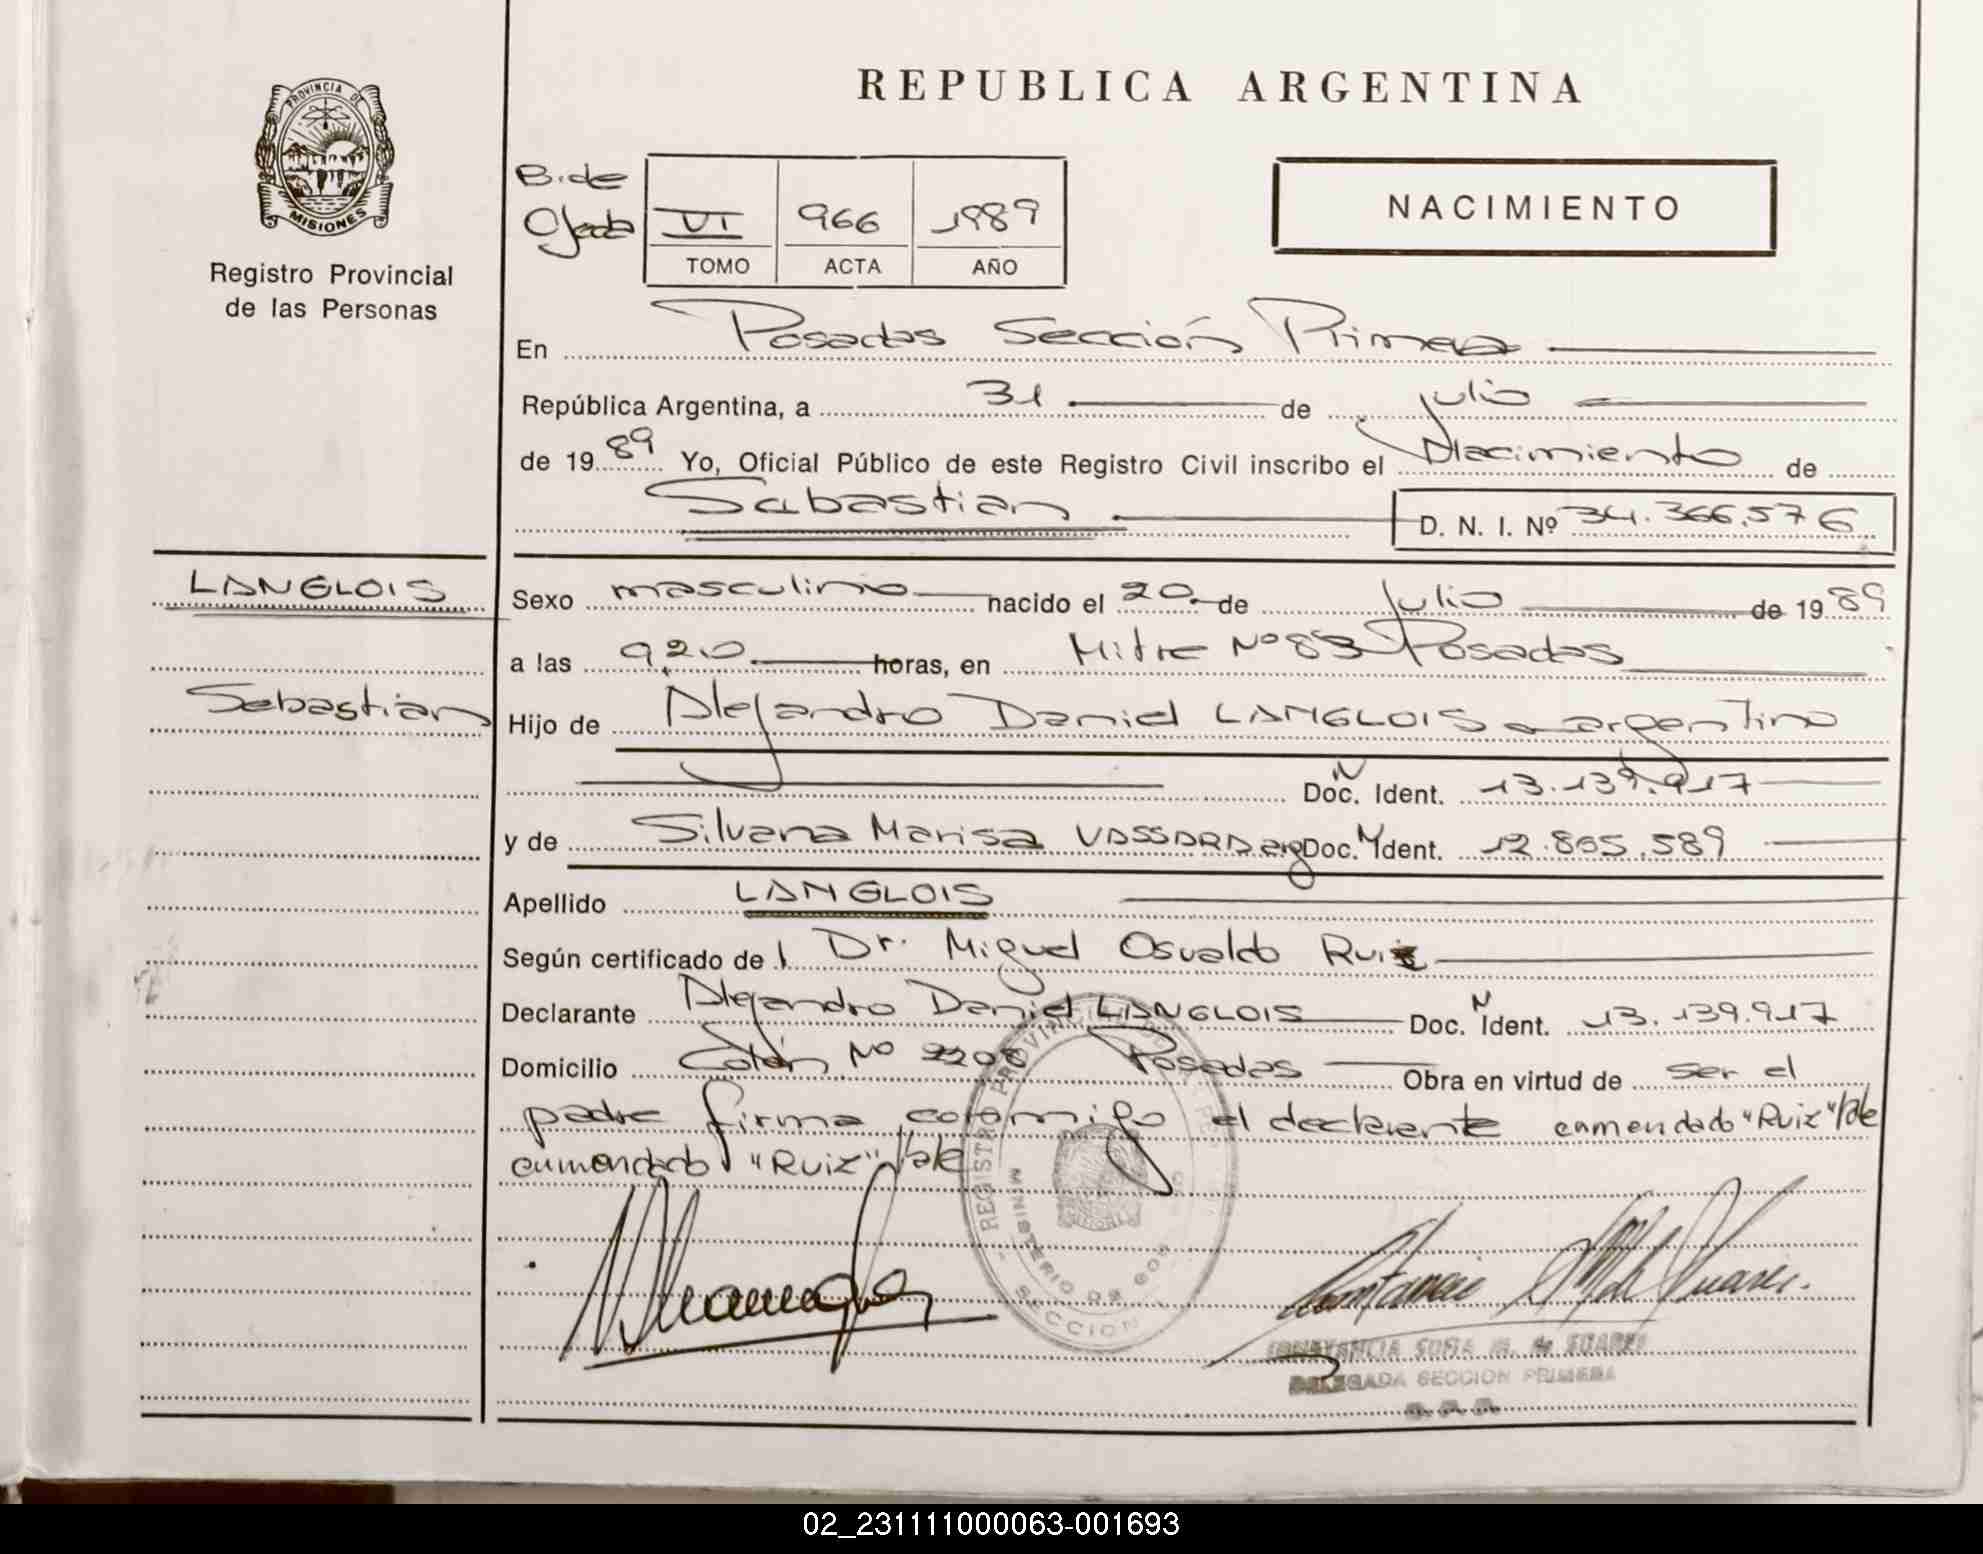 PROVINCIA DE
MISIONES
Registro Provincial
de las Personas
REPUBLICA ARGENTINA
NACIMIENTO
VI 966 1989
TOMO ACTA AÑO
En Posadas Sección Primera
República Argentina, a 31 de julio
de 1989 Yo, Oficial Público de este Registro Civil inscribo el Nacimiento de
Sebastian D. N. I. Nº 34.366.576
LANGLOIS
Sebastian
Sexo masculino nacido el 20 de julio de 1989
a las 9,20 horas, en Mitre Nº 83 Posadas
Hijo de Alejandro Daniel LANGLOIS argentino
Doc. N Ident. 13.139.917
y de Silvana Marisa VASSARA arg Doc. N Ident. 12.865.589
Apellido LANGLOIS
Según certificado de l Dr. Miguel Osvaldo Ruiz
Declarante Alejandro Daniel LANGLOIS Doc. N Ident. 13.139.917
Domicilio Colón Nº 2208 Posadas Obra en virtud de ser el
padre firma conmigo el declarante enmendado "Ruiz" Vale
enmendado "Ruiz" Vale
REGISTRO PROVINCIAL
MINISTERIO DE GOB
SECCION
CONSTANCIA SOFIA M. de SUAREZ
DELEGADA SECCION PRIMERA
02_231111000063-001693